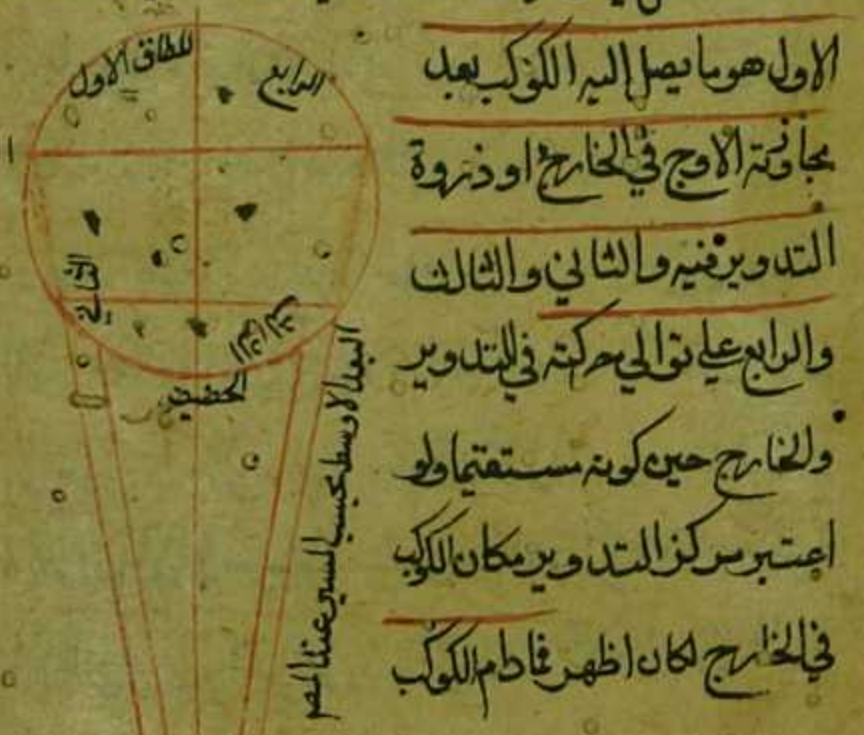 الاول هو ما يصل اليه الكوكب بعد
مجاوزته الاوج في الخارج او ذروة
التدوير فيه والثاني والثالث
والرابع علي توالي حركته في التدوير
والخارج حين كونه مستقيما ولو
اعتبر مركز التدوير مكان الكوكب
في الخارج لكان اظهر فما دام الكوكب
النطاق الاول
الرابع
الثاني
الثالث
الحضيض
البعد الاوسط بحسب المسير عند المص
ا